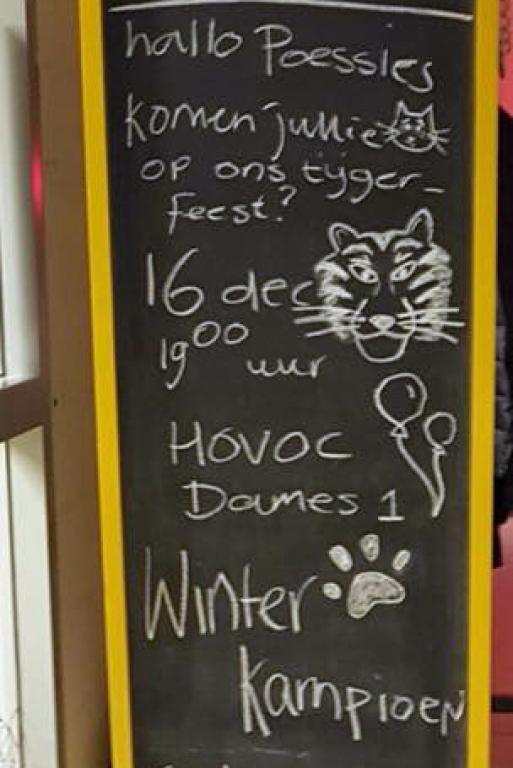 hallo Poessies
komen jullie
op ons tijger-
feest?
16 dec
19⁰⁰ uur
HOVOC
Dames 1
Winter
kampioen